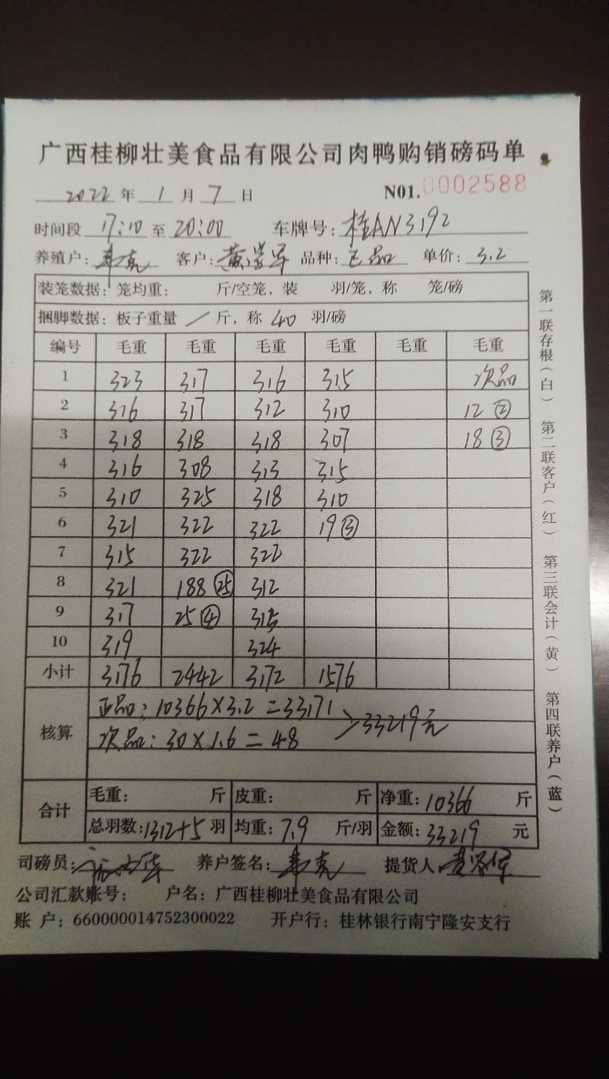 广西桂柳壮美食品有限公司肉鸭购销磅码单
2022 年 1 月 7 日 N01. 0002588
时间段 17:10 至 20:00 车牌号: 桂AN3192
养殖户: 韦克 客户: 黄 品种: 正品 单价: 3.2
装笼数据: 笼均重: 斤/空笼, 装 羽/笼, 称 笼/磅
捆脚数据: 板子重量 / 斤, 称 40 羽/磅
编号 毛重 毛重 毛重 毛重 毛重 毛重
1 323 317 316 315 次品
2 316 317 312 310 12 ②
3 318 318 318 307 18 ③
4 316 308 313 315
5 310 325 318 310
6 321 322 322 19 ③
7 315 322 322
8 321 188 ㉕ 312
9 317 25 ④ 315
10 319 324
小计 3176 2442 3172 1576
核算
正品: 10366×3.2=33171
次品: 30×1.6=48
>33219元
合计
毛重: 斤 皮重: 斤 净重: 10366 斤
总羽数: 1312+5 羽 均重: 7.9 斤/羽 金额: 33219 元
司磅员: 养户签名: 韦克 提货人 黄
公司汇款账号: 户名: 广西桂柳壮美食品有限公司
账 户: 660000014752300022 开户行: 桂林银行南宁隆安支行
第一联存根(白) 第二联客户(红) 第三联会计(黄) 第四联养户(蓝)